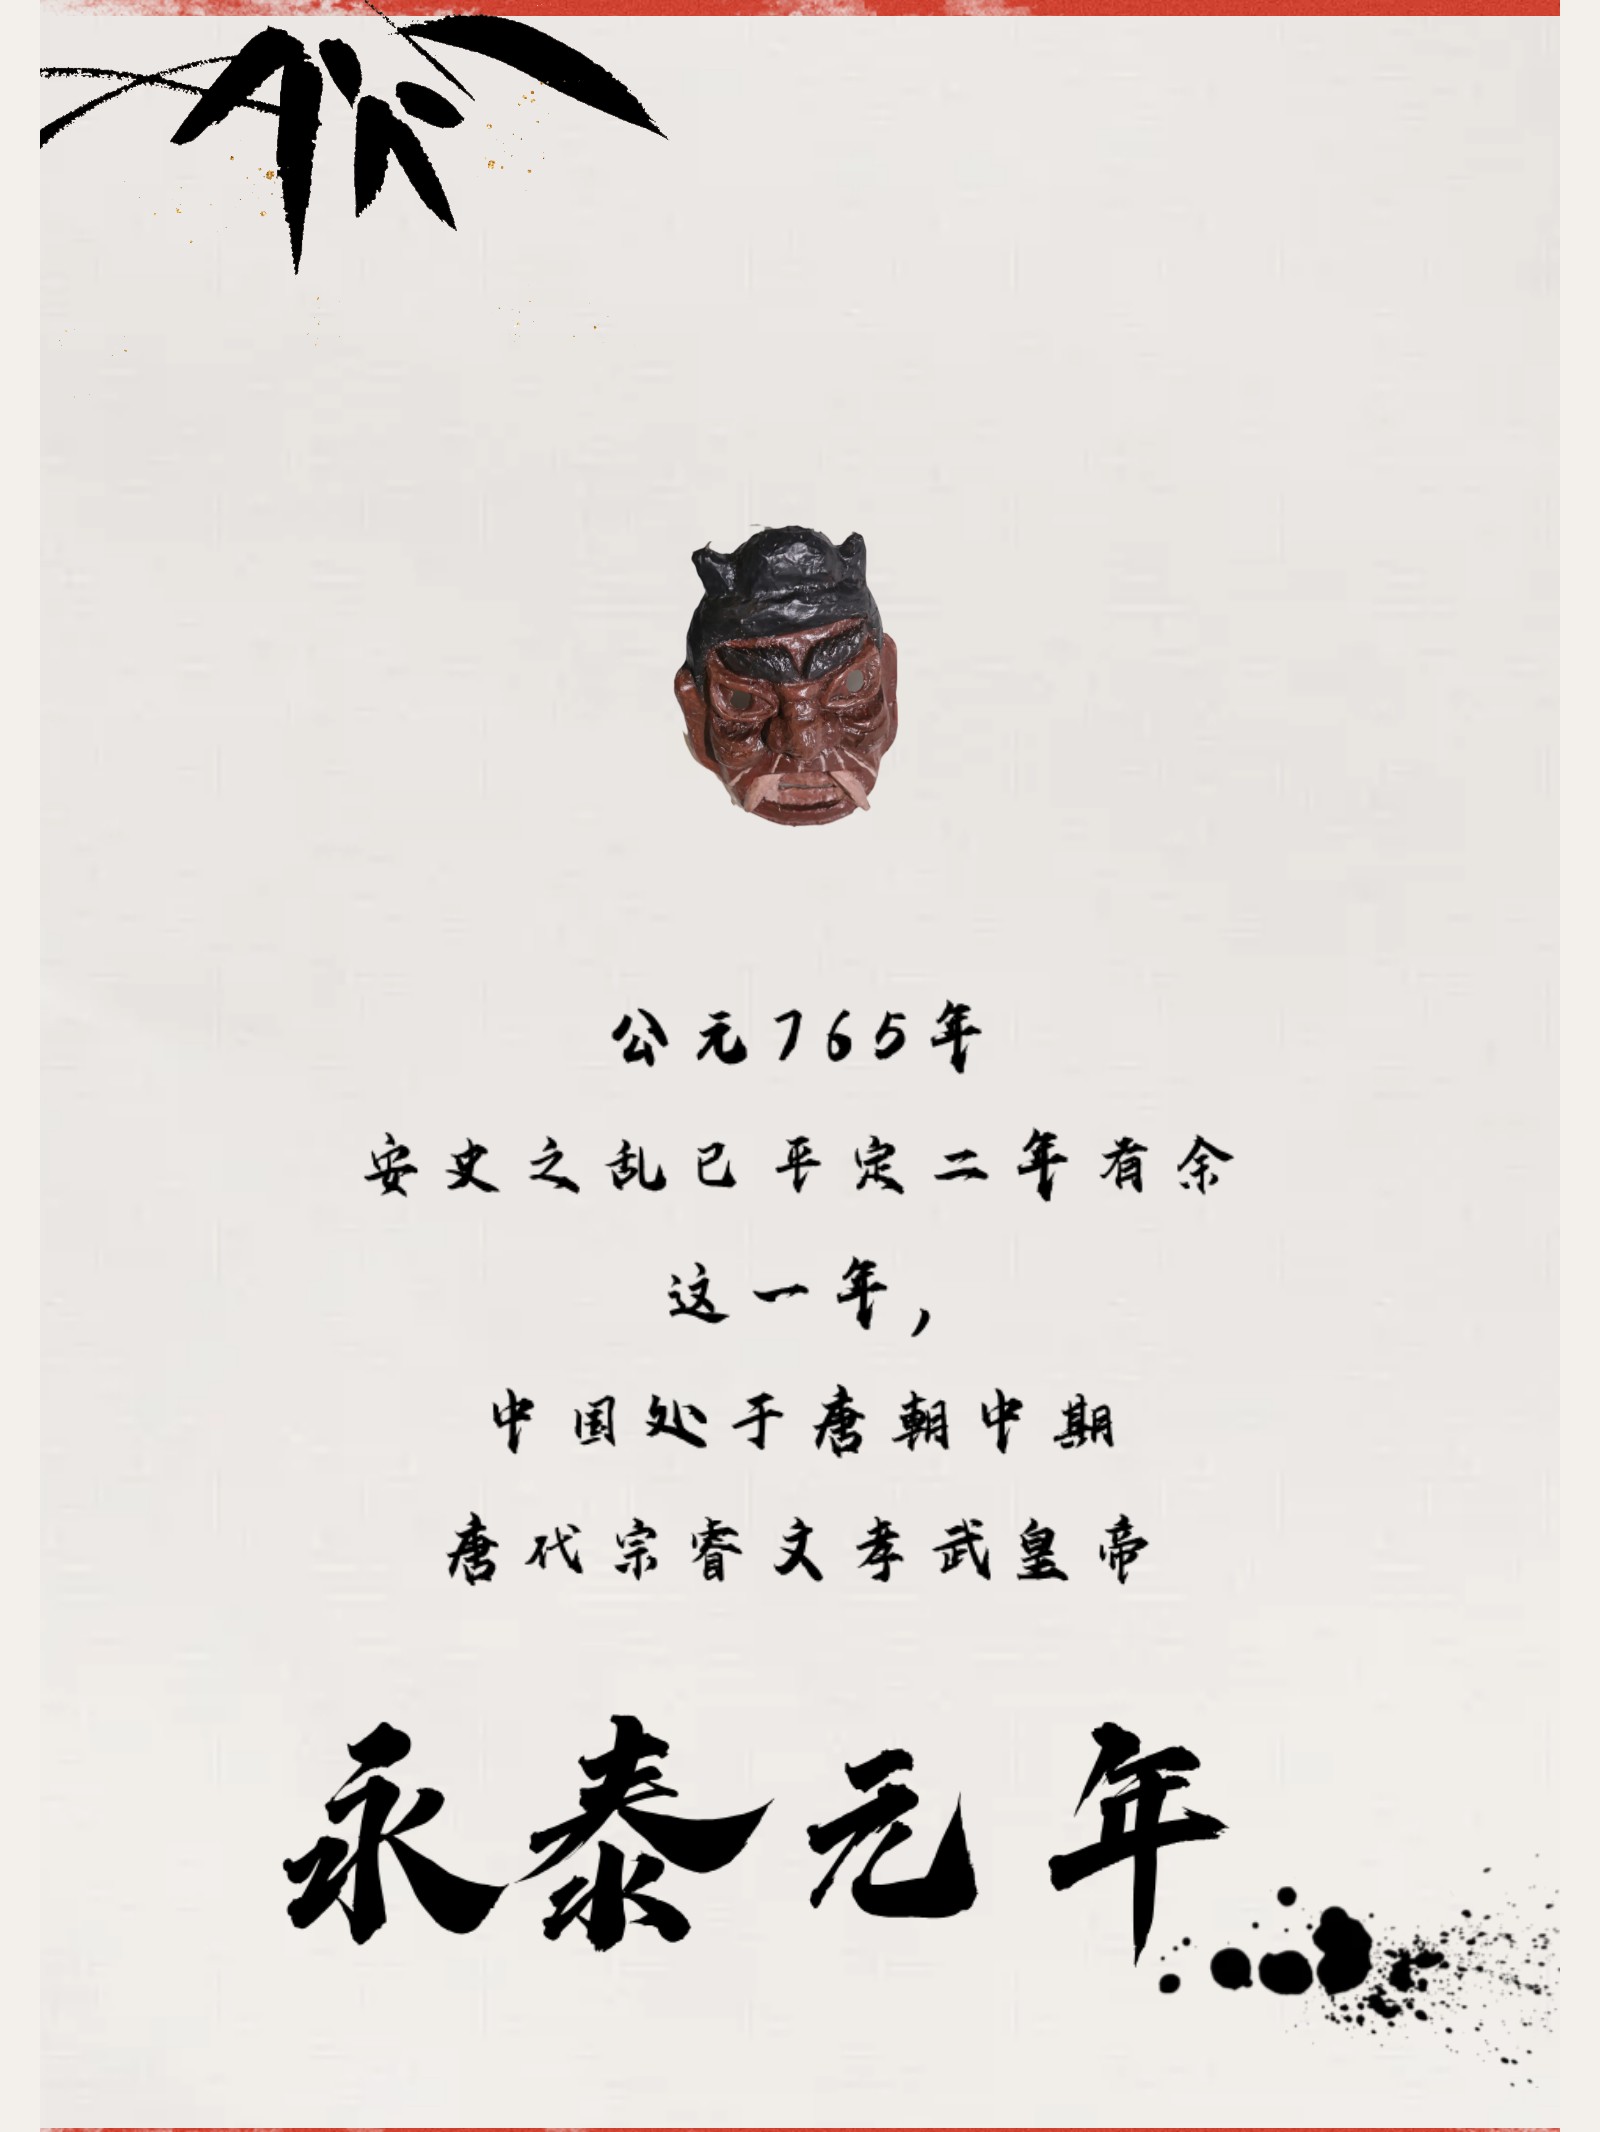 公元765年
安史之乱已平定二年有余
这一年，
中国处于唐朝中期
唐代宗睿文孝武皇帝
永泰元年